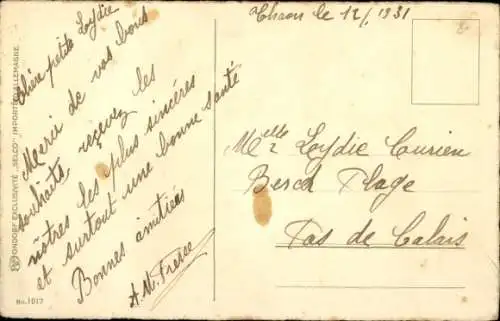 Thaon le 12/1 1931
Chère petite Lydie
Merci de vos bons
souhaits, reçevez les
nôtres les plus sincères
et surtout une bonne santé
Bonnes amitiés
A. M. Fresse
Melle Lydie Courien
Berck Plage
Pas de Calais
EXCLUSIVITÉ „BELCO" IMPORTÉ D'ALLEMAGNE
No. 1017